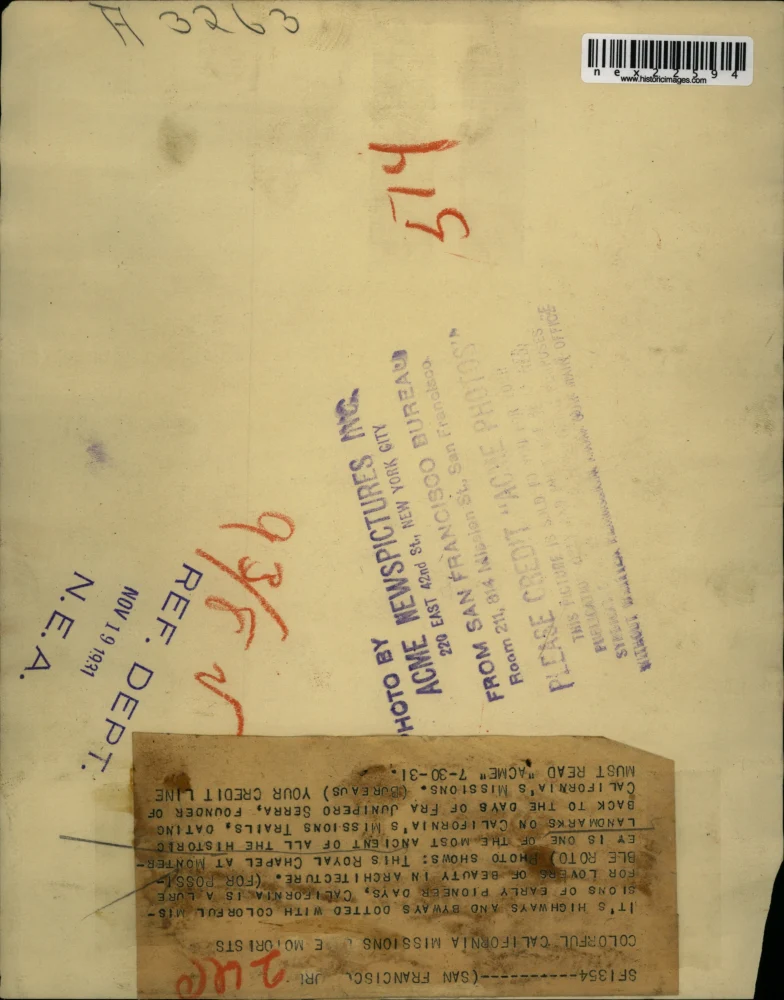 A 3263
nex22594
www.historicimages.com
514
PHOTO BY
ACME NEWSPICTURES INC.
220 EAST 42nd St., NEW YORK CITY
FROM SAN FRANCISCO BUREAU
Room 211, 814 Mission St., San Francisco
PLEASE CREDIT "ACME PHOTOS"
THIS PICTURE IS
WITHOUT WRITTEN
REF. DEPT.
NOV 19 1931
N.E.A.
SF1354-----------(SAN FRANCISC
COLORFUL CALIFORNIA MISSIONS E MOTORISTS
IT'S HIGHWAYS AND BYWAYS DOTTED WITH COLORFUL MIS-
SIONS OF EARLY PIONEER DAYS, CALIFORNIA IS A LURE
FOR LOVERS OF BEAUTY IN ARCHITECTURE. (FOR POSSI-
BLE ROTO) PHOTO SHOWS: THIS ROYAL CHAPEL AT MONTER-
EY IS ONE OF THE MOST ANCIENT OF ALL THE HISTORIC
LANDMARKS ON CALIFORNIA'S MISSIONS TRAILS, DATING
BACK TO THE DAYS OF FRA JUNIPERO SERRA, FOUNDER OF
CALIFORNIA'S MISSIONS. (BUREAUS) YOUR CREDIT LINE
MUST READ "ACME" 7-30-31.